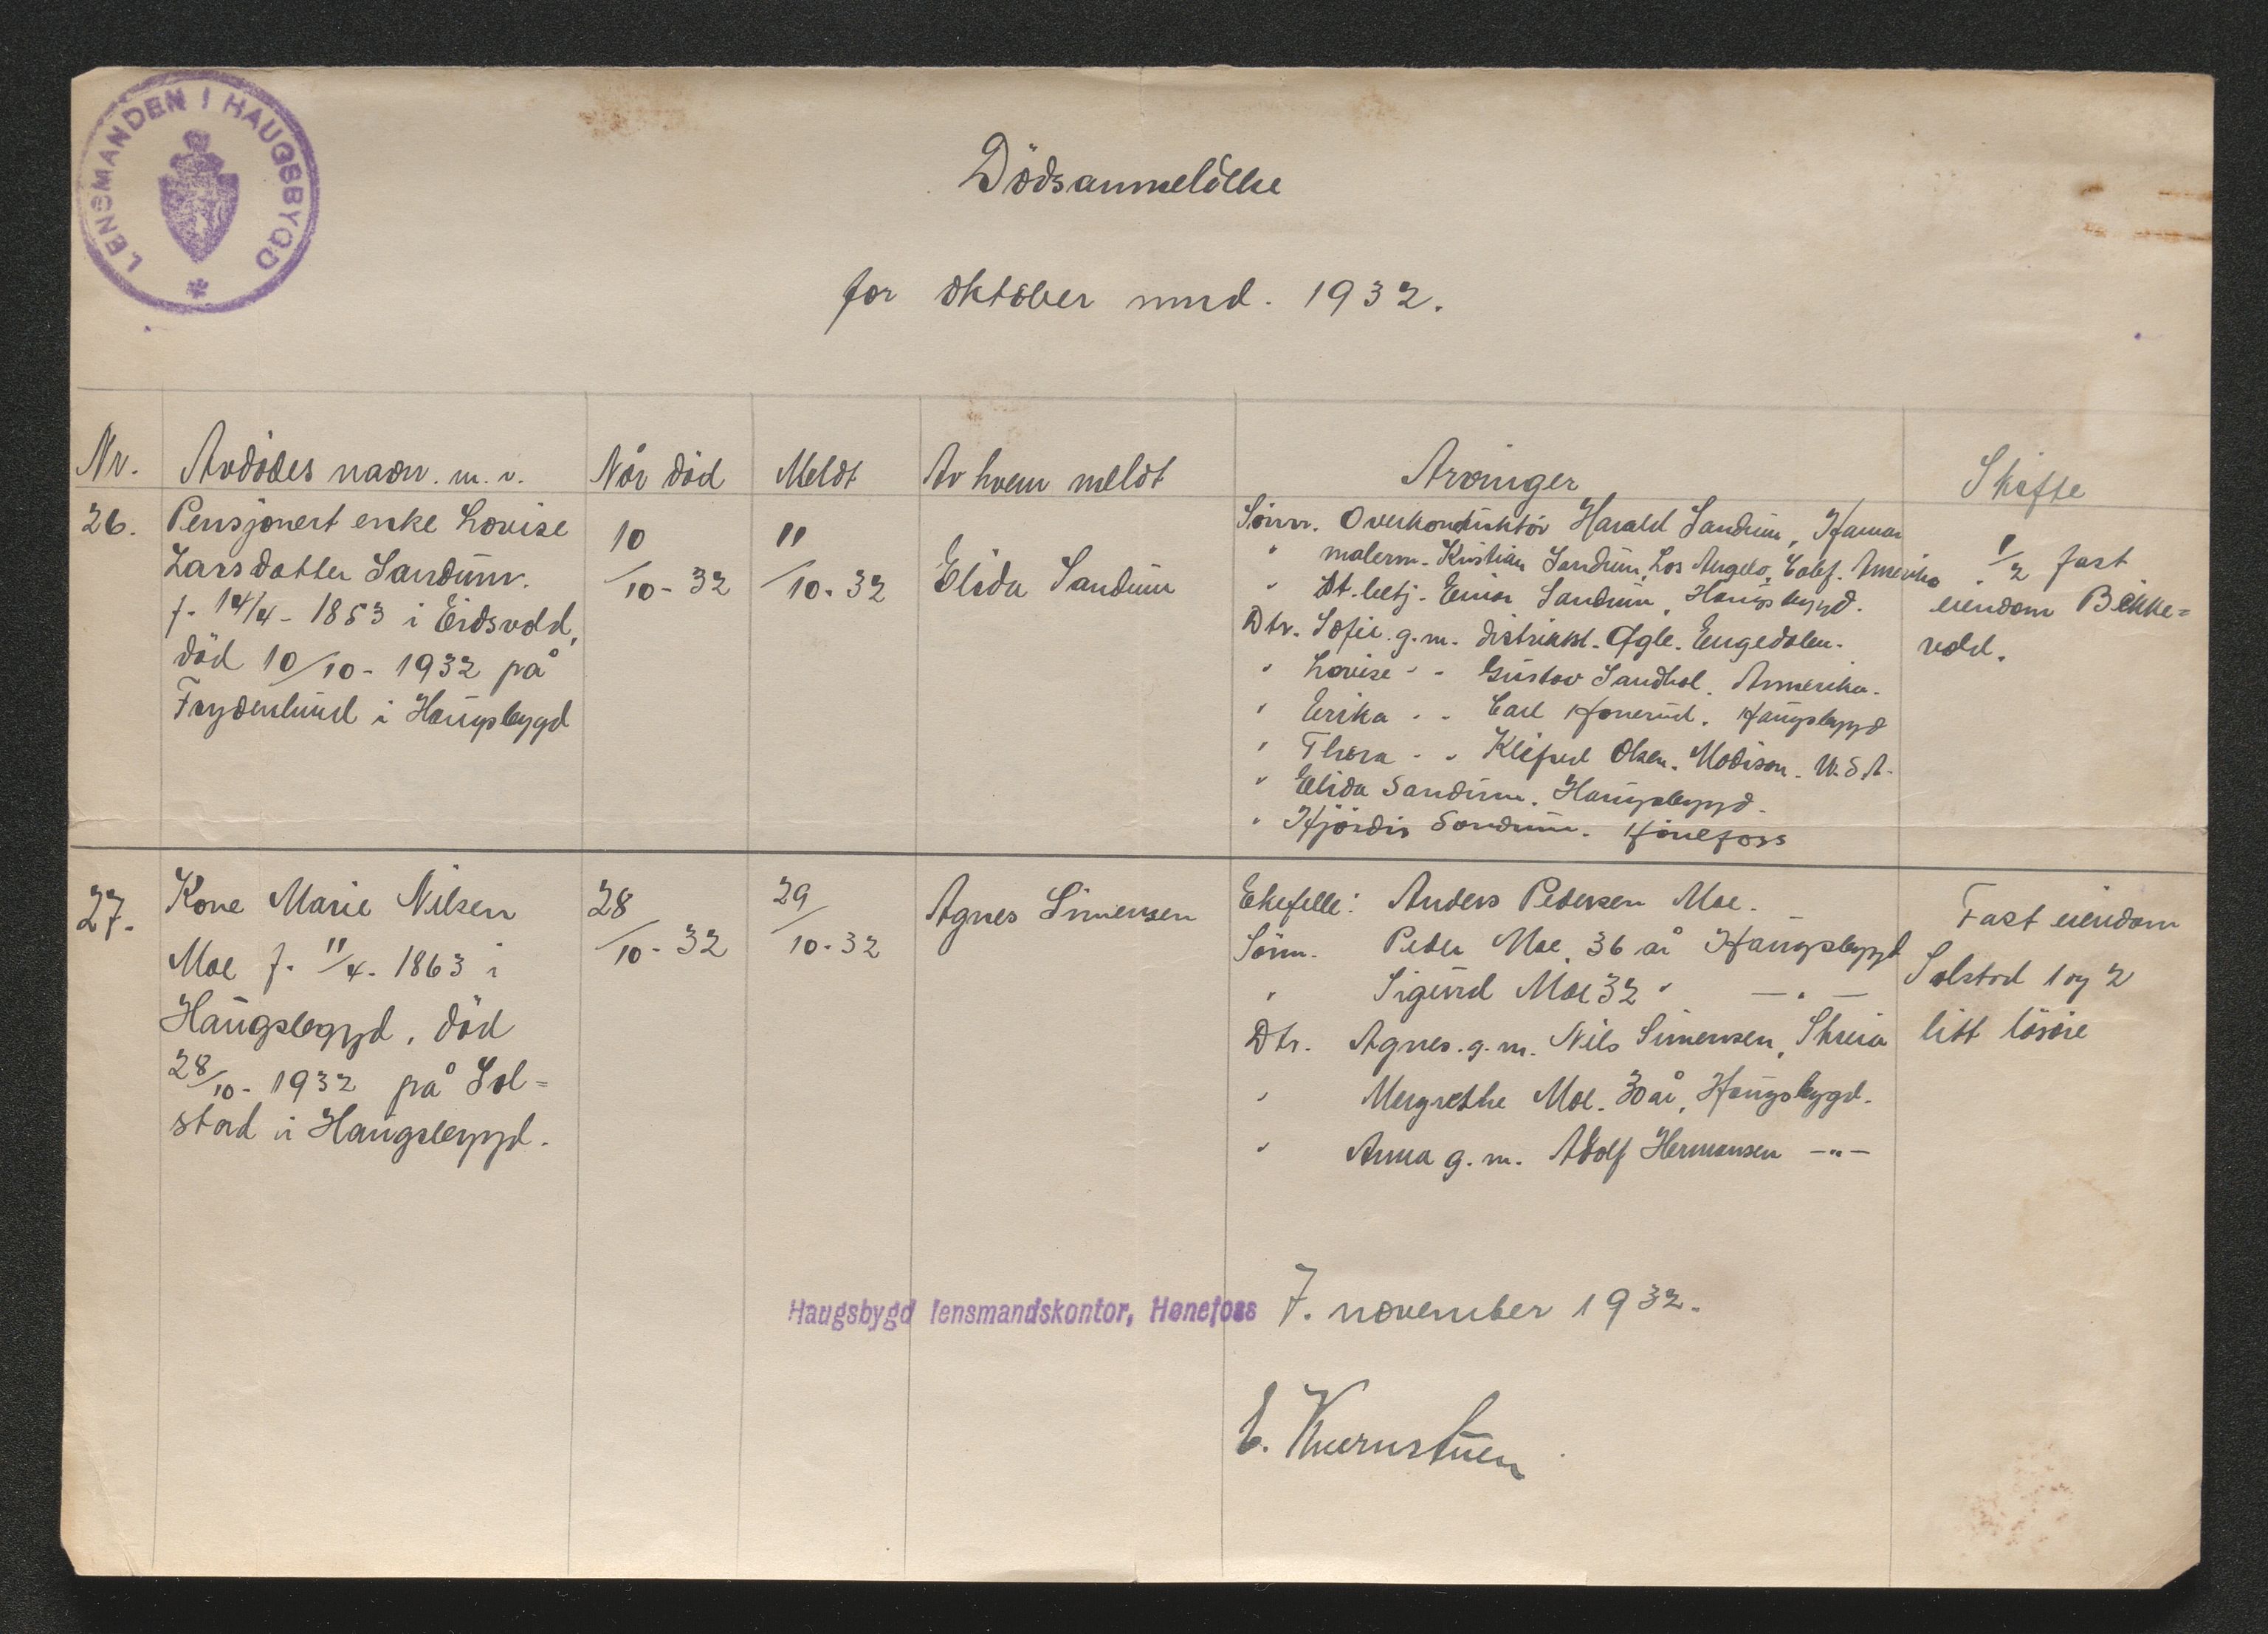 LENSMANDEN I HAUGSBYGD
Dödsanmeldelse
for oktober mnd. 1932.
Nr. Avdödes navn. m. v. Når död Meldt Av hvem meldt Arvinger Skifte
26. Pensjonert enke Lovise
Larsdatter Sandum.
f. 14/4 - 1853 i Eidsvold,
död 10/10 - 1932 på
Frydenlund i Haugsbygd
10/10 - 32
11/10 - 32
Elida Sandum
Sönn. Overkonduktör Harald Sandum, Hamar
" malerm. Kristian Sandum, Los Angelo, Calif. Amerika
" St. betj. Einar Sandum, Haugsbygd.
Dtr. Sofie. g. m. distriktst. Ogle. Engedalen.
" Lovise " " Gustav Sandhol. Amerika.
" Erika " " Carl Honerud. Haugsbygd
" Thora " " Kliford Olsen. Madison. U.S.A.
" Elida Sandum. Haugsbygd.
" Hjördis Sandum. Hönefoss
1/2 fast
eiendom Bikke=
vold.
27. Kone Marie Nilsen
Moe f. 11/4 - 1863 i
Haugsbygd, död
28/10 - 1932 på Sol=
stad i Haugsbygd.
28/10 - 32
29/10 - 32
Agnes Simensen
Ektefelle: Anders Pedersen Moe.
Sönn. Peder Moe, 36 år Haugsbygd
" Sigurd Moe 32 " — " —
Dtr. Agnes. g. m. Nils Simensen, Skreia
" Margrethe Moe. 30 år, Haugsbygd.
" Anna g. m. Adolf Hermansen — " —
Fast eiendom
Solstad 1 og 2
litt lösöre
Haugsbygd lensmandskontor, Hønefoss 7. november 1932.
E. Kvernstuen